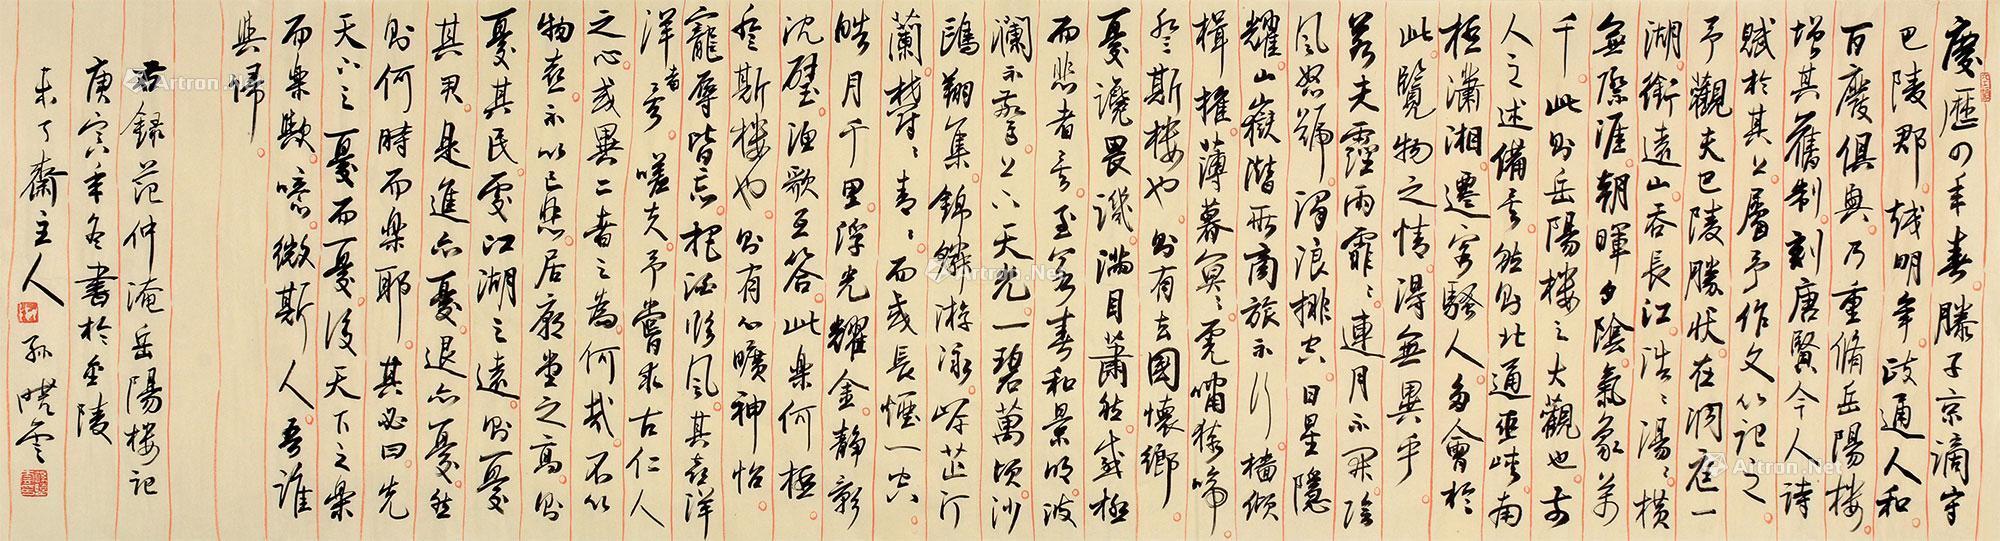 慶歷四年春滕子京謫守
巴陵郡越明年政通人和
百廢俱興乃重脩岳陽樓
增其舊制刻唐賢今人詩
賦於其上屬予作文以記之
予觀夫巴陵勝狀在洞庭一
湖銜遠山吞長江浩浩湯湯橫
無際涯朝暉夕陰氣象萬
千此則岳陽樓之大觀也前
人之述備矣然則北通巫峽南
極瀟湘遷客騷人多會於
此覽物之情得無異乎
若夫霪雨霏霏連月不開陰
風怒號濁浪排空日星隱
耀山嶽潛形商旅不行檣傾
楫摧薄暮冥冥虎嘯猿啼
登斯樓也則有去國懷鄉
憂讒畏譏滿目蕭然感極
而悲者矣至若春和景明波
瀾不驚上下天光一碧萬頃沙
鷗翔集錦鱗游泳岸芷汀
蘭郁郁青青而或長煙一空
皓月千里浮光耀金靜影
沈璧漁歌互答此樂何極
登斯樓也則有心曠神怡
寵辱皆忘把酒臨風其喜洋
洋者矣嗟夫予嘗求古仁人
之心或異二者之為何哉不以
物喜不以己悲居廟堂之高則
憂其民處江湖之遠則憂
其君是進亦憂退亦憂然
則何時而樂耶其必曰先
天下之憂而憂後天下之樂
而樂歟噫微斯人吾誰
與歸
右錄范仲淹岳陽樓記
庚寅年冬書於金陵
未了齋主人 孫曉雲
Artron.Net
Artron.Net
Artron.Net
Artron.Net
Artron.Net
Artron.Net